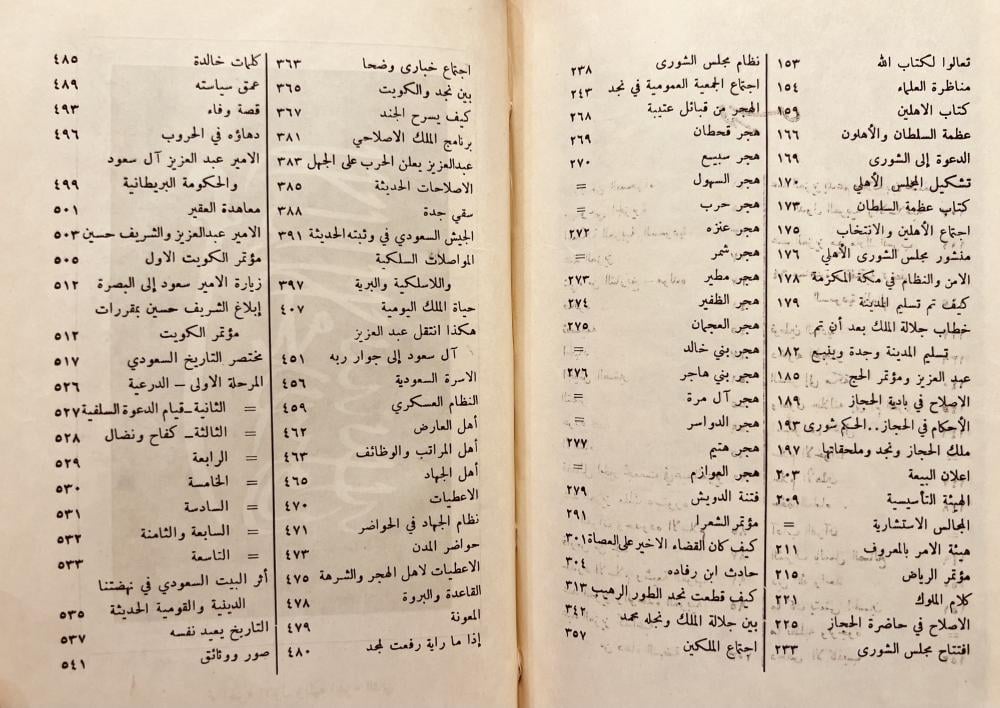 تعالوا لكتاب الله ١٥٣
مناظرة العلماء ١٥٤
كتاب الاهلين ١٥٩
عظمة السلطان والأهلون ١٦٦
الدعوة إلى الشورى ١٦٩
تشكيل المجلس الأهلي ١٧٠
كتاب عظمة السلطان ١٧٣
اجتماع الأهلين والانتخاب ١٧٥
منشور مجلس الشورى الأهلي ١٧٦
الامن والنظام في مكة المكرمة ١٧٨
كيف تم تسليم المدينة ١٧٩
خطاب جلالة الملك بعد أن تم
تسليم المدينة وجدة وينبع ١٨٢
عبد العزيز ومؤتمر الحج ١٨٥
الاصلاح في بادية الحجاز ١٨٩
الأحكام في الحجاز..الحكم شورى ١٩٣
ملك الحجاز ونجد وملحقاتها ١٩٧
اعلان البيعة ٢٠٣
الهيئة التأسيسية ٢٠٩
المجالس الاستشارية =
هيئة الامر بالمعروف ٢١١
مؤتمر الرياض ٢١٥
كلام الملوك ٢٢١
الاصلاح في حاضرة الحجاز ٢٢٥
افتتاح مجلس الشورى ٢٣٣
نظام مجلس الشورى ٢٣٨
اجتماع الجمعية العمومية في نجد ٢٤٣
الهجر من قبائل عتيبة ٢٦٨
هجر قحطان ٢٦٩
هجر سبيع ٢٧٠
هجر السهول =
هجر حرب =
هجر عنزه ٢٧٢
هجر شمر =
هجر مطير ٢٧٣
هجر الظفير ٢٧٤
هجر العجمان ٢٧٥
هجر بني خالد =
هجر بني هاجر ٢٧٦
هجر آل مرة =
هجر الدواسر =
هجر هتيم ٢٧٧
هجر العوازم =
فتنة الدويش ٢٧٩
مؤتمر الشعرا ٢٩١
كيف كان القضاء الاخير على العصاة ٣٠١
حادث ابن رفاده ٣٠٤
كيف قطعت نجد الطور الرهيب ٣١٣
بين جلالة الملك ونجله محمد ٣٤٢
اجتماع الملكين ٣٥٧
اجتماع خبارى وضحا ٣٦٣
بين نجد والكويت ٣٦٥
كيف يسرح الجند ٣٦٧
برنامج الملك الاصلاحي ٣٨١
عبدالعزيز يعلن الحرب على الجهل ٣٨٣
الاصلاحات الحديثة ٣٨٥
سقي جدة ٣٨٨
الجيش السعودي في وثبته الحديثة ٣٩١
المواصلات السلكية
واللاسلكية والبرية ٣٩٧
حياة الملك اليومية ٤٠٧
هكذا انتقل عبد العزيز
آل سعود إلى جوار ربه ٤٥١
الاسرة السعودية ٤٥٦
النظام العسكري ٤٥٩
أهل العارض ٤٦٢
أهل المراتب والوظائف ٤٦٣
أهل الجهاد ٤٦٥
الاعطيات ٤٧٠
نظام الجهاد في الحواضر ٤٧١
حواضر المدن ٤٧٣
الاعطيات لاهل الهجر والشرهة ٤٧٥
القاعدة والبروة ٤٧٨
المعونة ٤٧٩
إذا ما راية رفعت لمجد ٤٨٠
كلمات خالدة ٤٨٥
عمق سياسته ٤٨٩
قصة وفاء ٤٩٣
دهاؤه في الحروب ٤٩٦
الامير عبد العزيز آل سعود
والحكومة البريطانية ٤٩٩
معاهدة العقير ٥٠١
الامير عبدالعزيز والشريف حسين ٥٠٣
مؤتمر الكويت الاول ٥٠٥
زيارة الامير سعود إلى البصرة ٥١٢
إبلاغ الشريف حسين بمقررات
مؤتمر الكويت ٥١٢
مختصر التاريخ السعودي ٥١٧
المرحلة الاولى – الدرعية ٥٢٦
= الثانية–قيام الدعوة السلفية ٥٢٧
= الثالثة– كفاح ونضال ٥٢٨
= الرابعة ٥٢٩
= الخامسة ٥٣٠
= السادسة ٥٣١
= السابعة والثامنة ٥٣٢
= التاسعة ٥٣٣
أثر البيت السعودي في نهضتنا
الدينية والقومية الحديثة ٥٣٥
التاريخ يعيد نفسه ٥٣٧
صور ووثائق ٥٤١